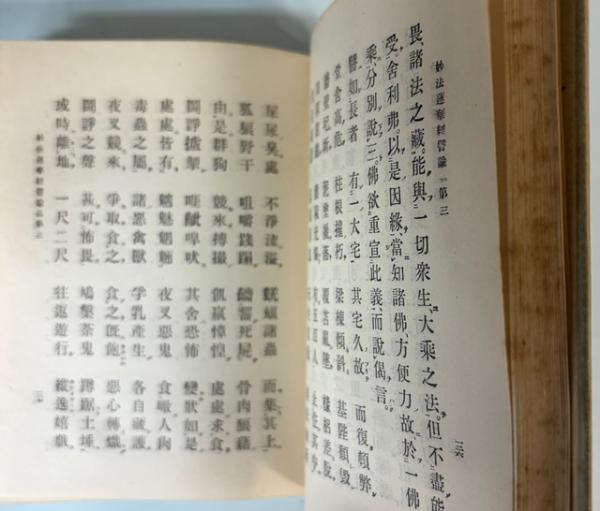 妙法蓮華經譬喩品第三
畏、諸法之藏。能與一切衆生、大乘之法、但不盡能
受。舍利弗、以是因緣、當知諸佛、方便力故、於一佛
乘、分別說三。佛欲重宣此義、而說偈言。
譬如長者 有一大宅 其宅久故 而復頓弊
堂舍高危 柱根摧朽 梁棟傾斜 基陛頽毀
牆壁圮坼 泥塗褫落 覆苫亂墜 椽梠差脫
有五百人 止住其中
屎尿臭處 不淨流溢 蜣蜋諸蟲 而集其上
狐狼野干 咀嚼踐蹋 齩齧死屍 骨肉狼藉
由是群狗 競來搏撮 飢羸慞惶 處處求食
鬪諍摣掣 啀喍嘷吠 其舍恐怖 變狀如是
處處皆有 魑魅魍魎 夜叉惡鬼 食噉人肉
毒蟲之屬 諸惡禽獸 孚乳產生 各自藏護
夜叉競來 爭取食之 食之旣飽 惡心轉熾
鬪諍之聲 甚可怖畏 鳩槃荼鬼 蹲踞土埵
或時離地 一尺二尺 往返遊行 縱逸嬉戲
妙法蓮華經譬喩品第三